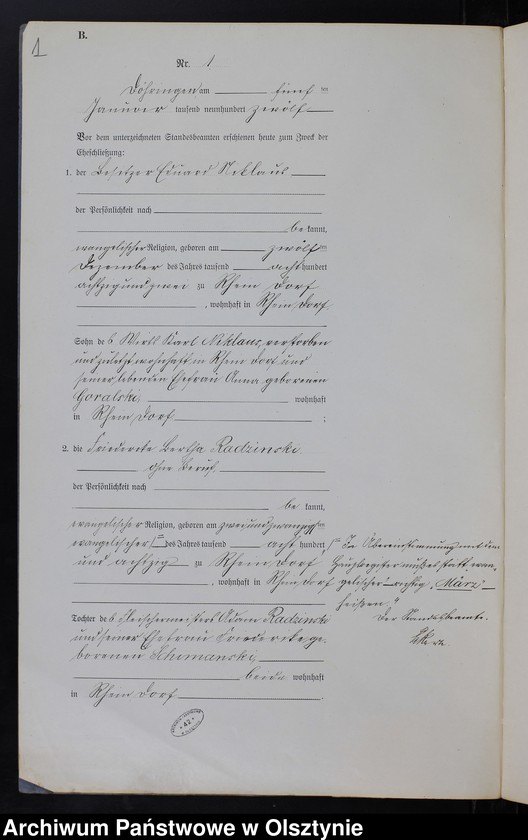 1
B.
Nr. 1
Döhringen am fünf ten
Januar tausend neunhundert zwölf
Vor dem unterzeichneten Standesbeamten erschienen heute zum Zweck der
Eheschließung:
1. der Besitzer Eduard Niklaus
der Persönlichkeit nach
bekannt,
evangelischer Religion, geboren am zwölf ten
Dezember des Jahres tausend acht hundert
achtzig und zwei zu Rhein Dorf
, wohnhaft in Rhein Dorf
Sohn des Wirts Karl Niklaus, verstorben
und zuletzt wohnhaft in Rhein Dorf und
seiner lebenden Ehefrau Anna geborenen
Goralski, wohnhaft
in Rhein Dorf ;
2. die Friederike Bertha Radzinski
ohne Beruf,
der Persönlichkeit nach
bekannt,
evangelischer Religion, geboren am zweiundzwanzig ten
evangelischer des Jahres tausend acht hundert
und achtzig zu Rhein Dorf
, wohnhaft in Rhein Dorf
In Übereinstimmung mit dem
muß es statt evan-
gelischer richtig „März"
heißen.
Der Standesbeamte.
Tochter des Fleischermeisters Adam Radzinski
und seiner Ehefrau Friederike ge-
borenen Schimanski,
beide wohnhaft
in Rhein Dorf .
Archiwum Państwowe w Olsztynie